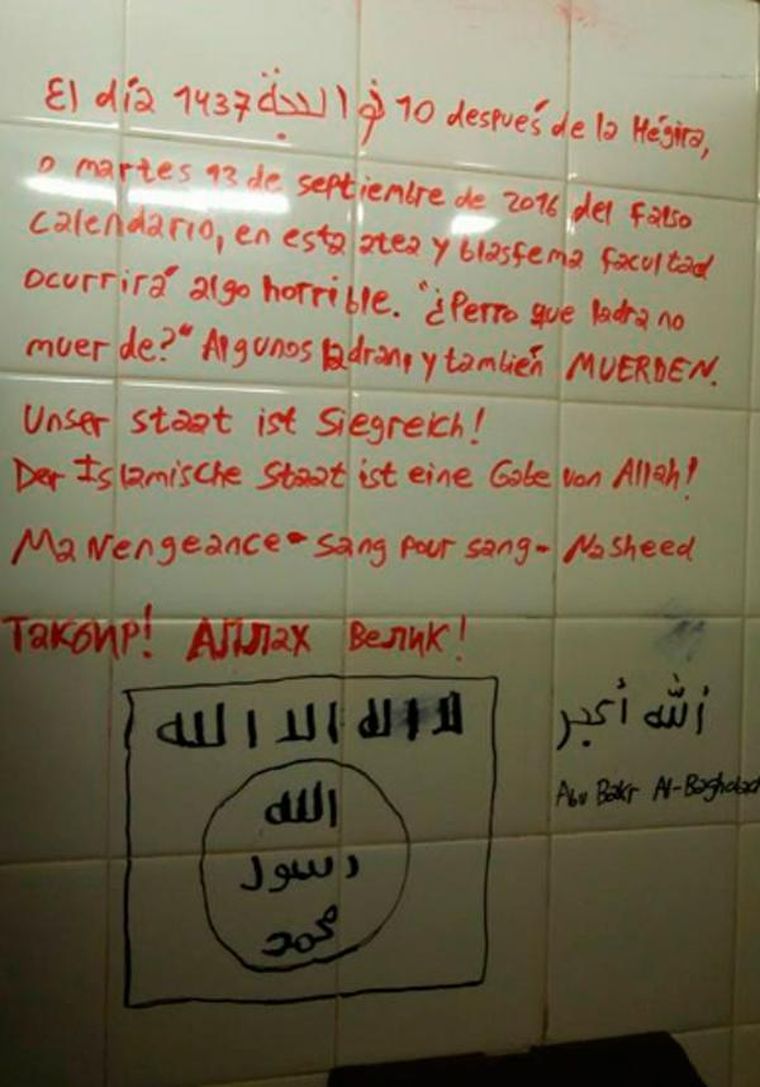 El día 1437 ذو الحجة 10 después de la Hégira,
o martes 13 de septiembre de 2016 del falso
calendario, en esta atea y blasfema facultad
ocurrirá algo horrible. "¿Perro que ladra no
muerde?" Algunos ladran, y también MUERDEN.
Unser staat ist Siegreich!
Der Islamische Staat ist eine Gabe von Allah!
Ma vengeance - sang pour sang - Nasheed
Такбир! Аллах Велик!
لا اله الا الله
الله
رسول
محمد
الله أكبر
Abu Bakr Al-Baghdad